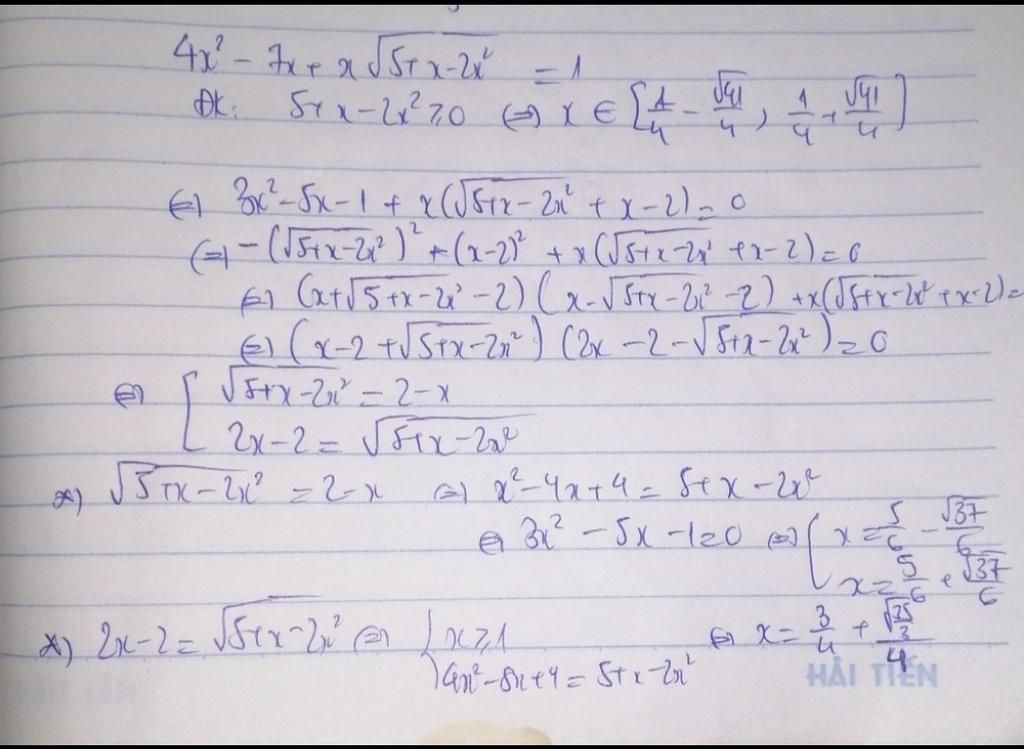 4x² - 7x + x√(5+x-2x²) = 1
ĐK: 5+x-2x² ≥ 0 ⇔ x ∈ [1/4 - √41/4, 1/4 + √41/4]
⇔ 3x² - 5x - 1 + x(√(5+x-2x²) + x - 2) = 0
⇔ -(√(5+x-2x²))² + (x-2)² + x(√(5+x-2x²) + x - 2) = 0
⇔ (x + √(5+x-2x²) - 2)(x - √(5+x-2x²) - 2) + x(√(5+x-2x²) + x - 2) =
⇔ (x - 2 + √(5+x-2x²))(2x - 2 - √(5+x-2x²)) = 0
⇔ [ √(5+x-2x²) = 2 - x
2x - 2 = √(5+x-2x²)
*) √(5+x-2x²) = 2 - x ⇔ x² - 4x + 4 = 5 + x - 2x²
⇔ 3x² - 5x - 1 = 0 ⇔ [ x = 5/6 - √37/6
x = 5/6 + √37/6
*) 2x - 2 = √(5+x-2x²) ⇔ { x ≥ 1 ⇔ x = 3/4 + √(35/3)/4
4x² - 8x + 4 = 5 + x - 2x²
HẢI TIẾN